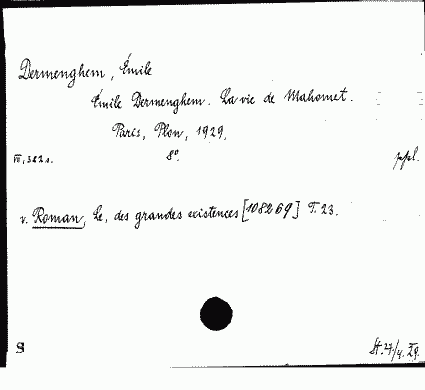 Dermenghem, Émile
Émile Dermenghem. La vie de Mahomet.
Paris, Plon, 1929.
VII, 382 s. 8°. ppl.
v. Roman, Le, des grandes existences [108269] T. 23.
S St. 27/4. 29.